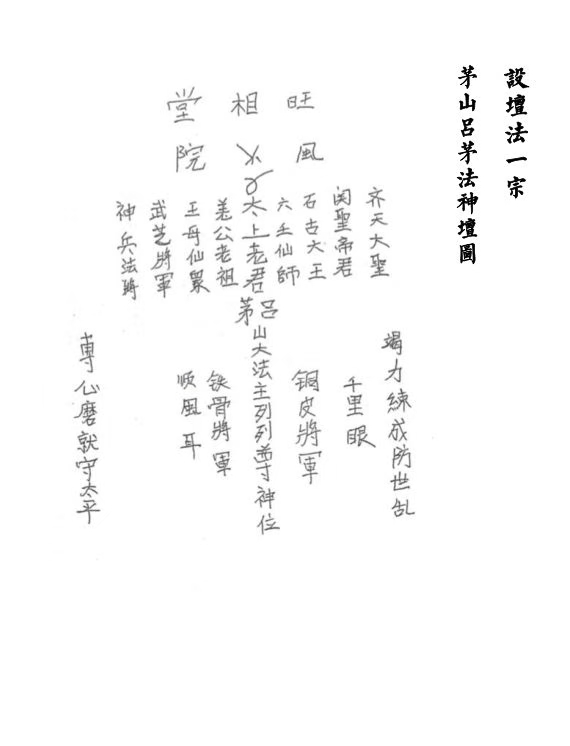 設壇法一宗
茅山呂茅法神壇圖
旺相堂
風 院
齐天大聖
関聖帝君
石古大王
六壬仙師
太上老君
姜公老祖
王母仙眾
武芝將軍
神兵法將
呂茅山大法主列列尊神位
竭力練成防世乱
千里眼
铜皮將軍
铁骨將軍
順風耳
專心磨就守太平